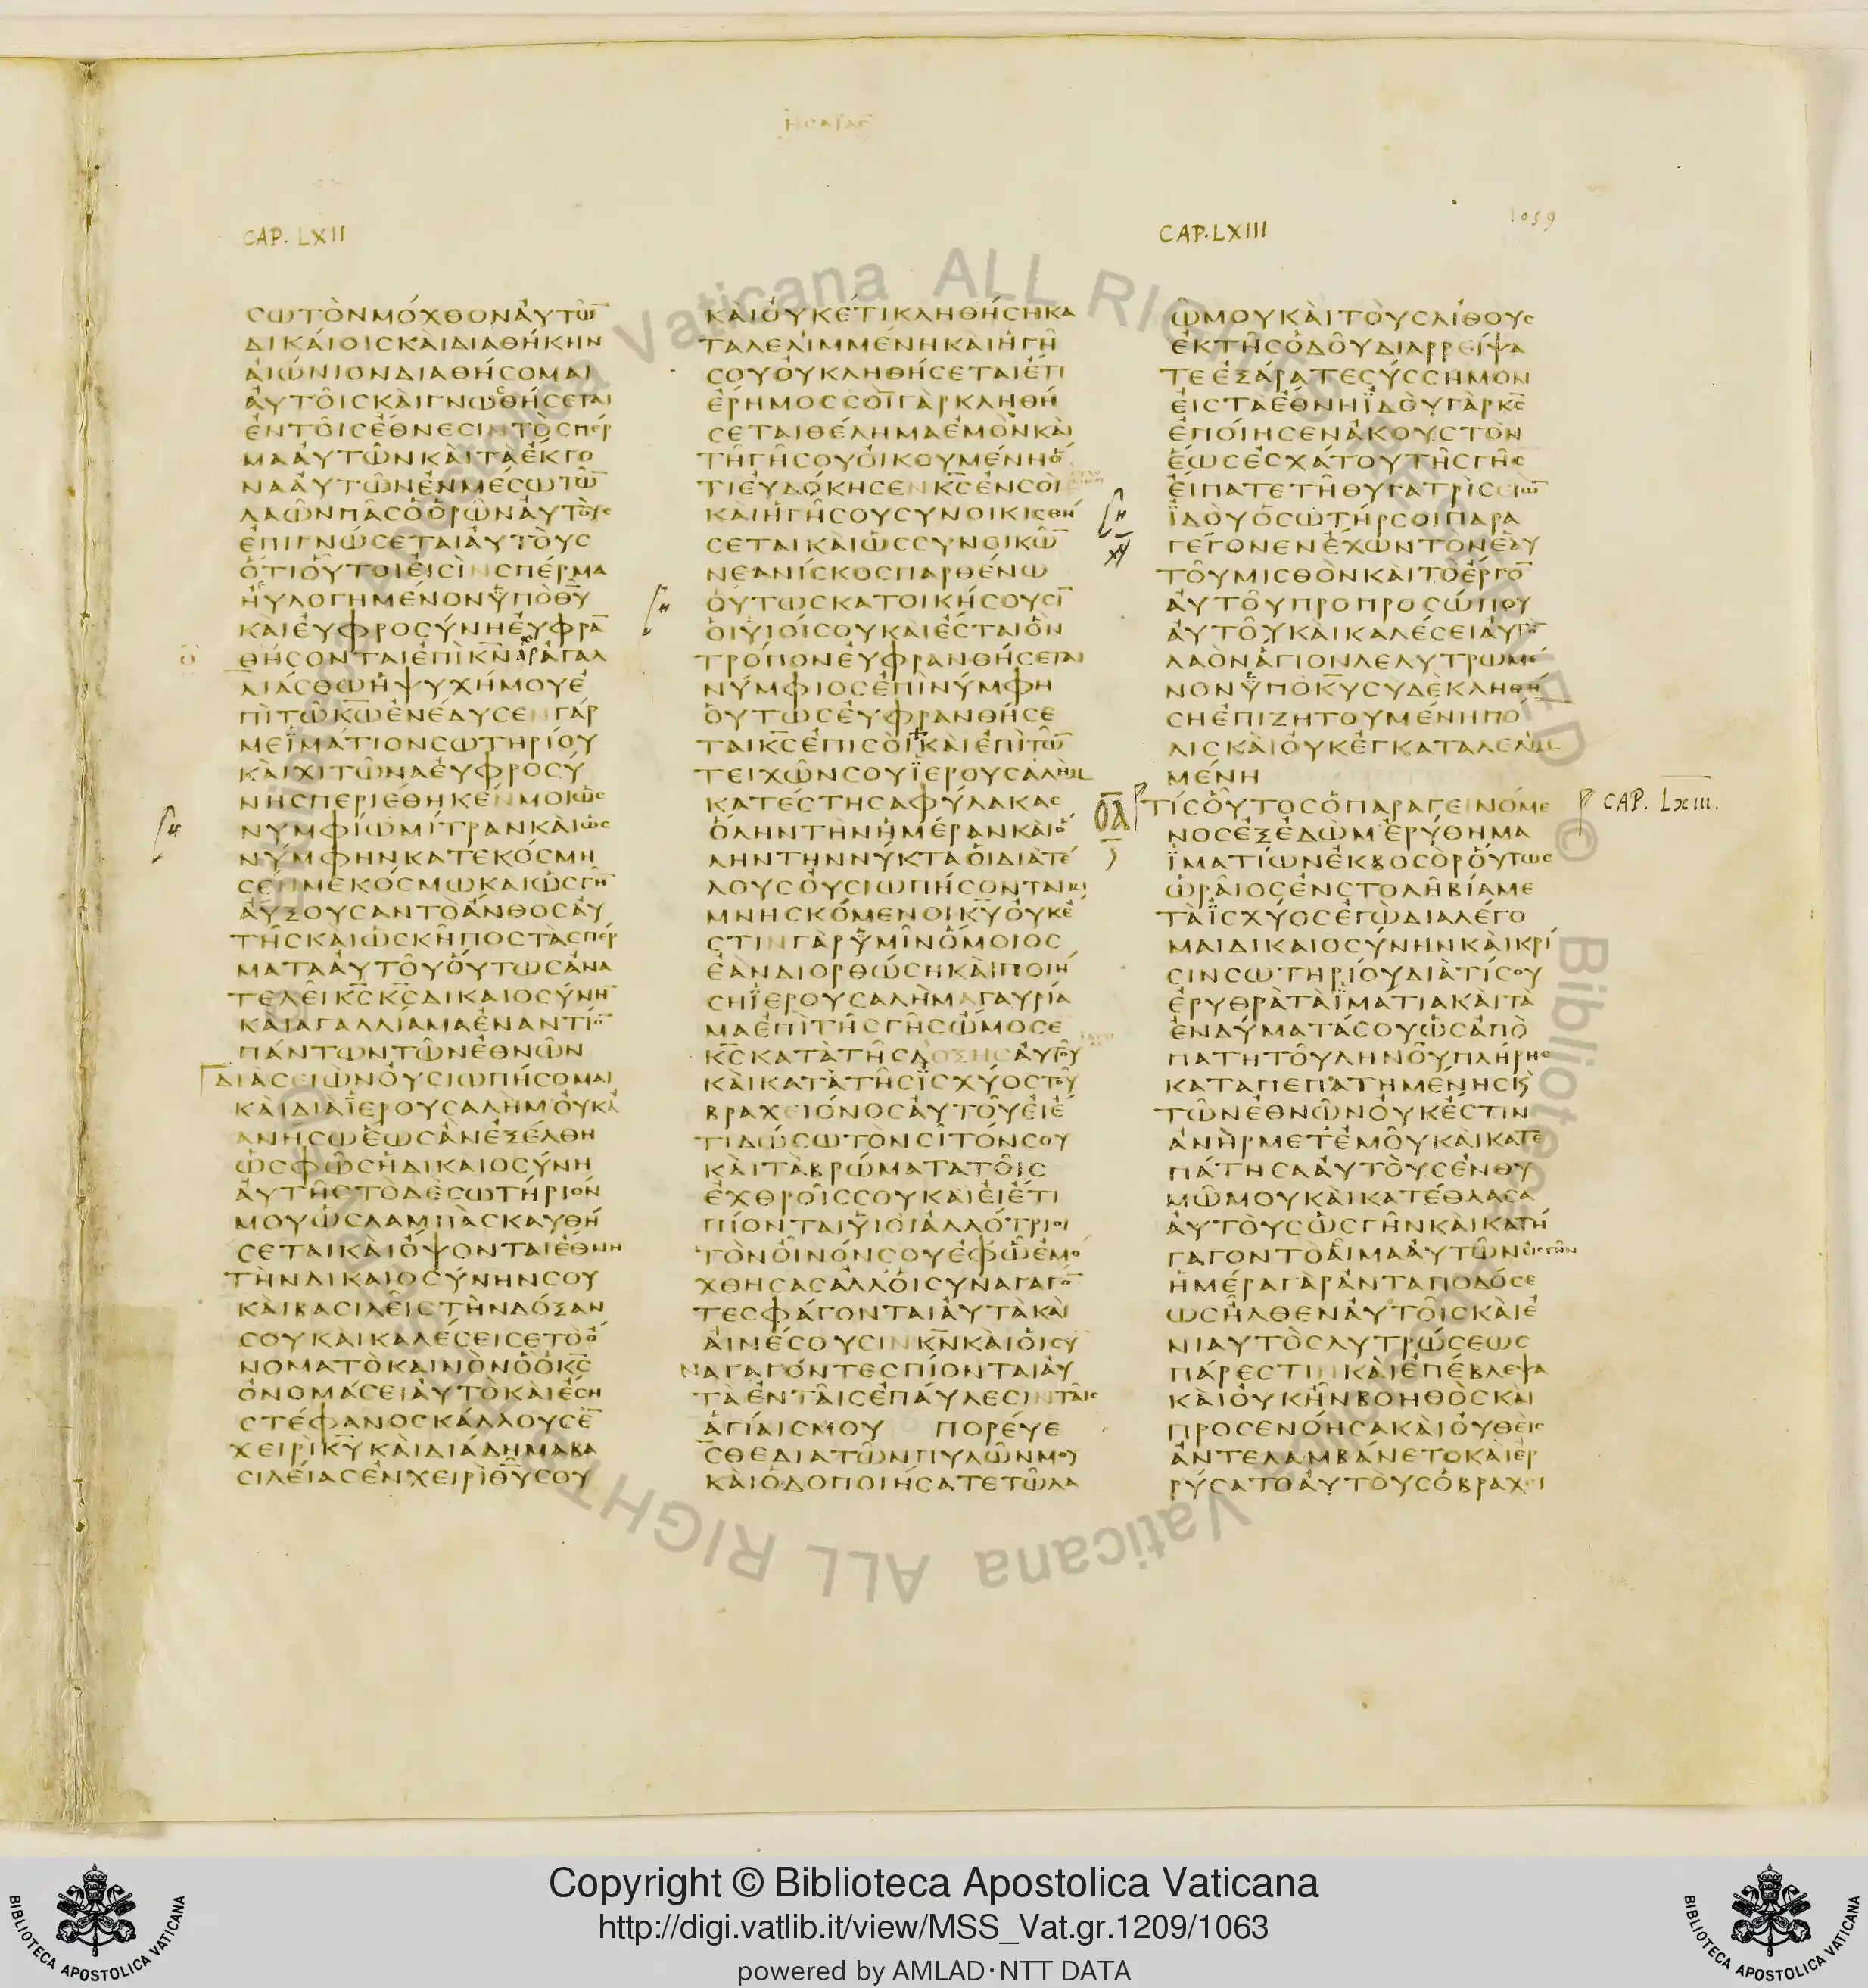 ΗϹΑΙΑϹ
CAP. LXII
ϹΩΤῸΝΜΌΧΘΟΝἈΥΤΩ̅
ΔΙΚΆΙΟΙϹΚΑῚΔΙΑΘΉΚΗΝ
ἈΙΏΝΙΟΝΔΙΑΘΉϹΟΜΑΙ
ἈΥΤΟΙϹΚΑῚΓΝΩϹΘΉϹΕΤΑΙ
ἘΝΤΟΙϹἜΘΝΕϹΙΝΤῸϹΠΕΡ
ΜΑἈΥΤΩΝΚΑῚΤΑἜΚΓΟ
ΝΑἈΥΤΩΝἘΝΜΈϹΩΤΩ̅
ΛΑΩΝΠΑϹὉὉΡΩΝἈΥΤΟΥϹ
ἘΠΙΓΝΏϹΕΤΑΙἈΥΤΟῪϹ
ὍΤΙΟΥΤΟΙἘΙϹῚΝϹΠΈΡΜΑ
ἨΥΛΟΓΗΜΈΝΟΝΫΠῸΘ̅Υ̅
ΚΑΙἘΥΦΡΟϹΎΝΗἘΥΦΡΑ̅
ΘΉϹΟΝΤΑΙἘΠῚΚ̅Ν̅ἈΓΑΛ
ΛΙΆϹΘΩἩΨΥΧΉΜΟΥἘ
ΠῚΤΩΚ̅Ω̅ἘΝΈΔΥϹΕΝΓΆΡ
ΜΕΪΜΆΤΙΟΝϹΩΤΗΡΊΟΥ
ΚΑῚΧΙΤΩΝΑἘΥΦΡΟϹΎ
ΝΗϹΠΕΡΙΈΘΗΚΈΝΜΟΙΩϹ
ΝΥΜΦΊΩΜΊΤΡΑΝΚΑῚΩϹ
ΝΎΜΦΗΝΚΑΤΕΚΌϹΜΗ
ϹΈΝΜΕΚΌϹΜΩΚΑΙὩϹΓΗ̅
ἈΥΞΟΥϹΑΝΤΟἌΝΘΟϹἈΥ
ΤΗϹΚΑῚὩϹΚΗΠΟϹΤᾺϹΠΕΡ
ΜΑΤΑἈΥΤΟΥὍΥΤΩϹἈΝΑ
ΤΕΛΕΙΚ̅Ϲ̅Κ̅Ϲ̅ΔΙΚΑΙΟϹΎΝΗ̅
ΚΑΙἈΓΑΛΛΊΑΜΑἘΝΑΝΤΊΟ̅
ΠΆΝΤΩΝΤΩΝἘΘΝΩΝ
ΔΙᾺϹΕΙῺΝΟΥϹΙΩΠΉϹΟΜΑΙ
ΚΑῚΔΙᾺΪΕΡΟΥϹΑΛῊΜΟΥΚἈ
ΑΝΉϹΩἝΩϹἊΝἘΞΈΛΘΗ
ὩϹΦΩϹἩΔΙΚΑΙΟϹΎΝΗ
ἈΥΤΗϹΤῸΔῈϹΩΤΉΡΙΟΝ
ΜΟΥὩϹΛΑΜΠᾺϹΚΑΥΘΉ
ϹΕΤΑΙΚΑῚὌΨΟΝΤΑΙἜΘΝΗ
ΤῊΝΔΙΚΑΙΟϹΎΝΗΝϹΟΥ
ΚΑῚΒΑϹΙΛΕΙϹΤῊΝΔΌΞΑΝ
ϹΟΥΚΑῚΚΑΛΈϹΕΙϹΕΤῸὌ
ΝΟΜΑΤῸΚΑΙΝῸΝὋὉΚ̅Ϲ̅
ὈΝΟΜΆϹΕΙἈΥΤῸΚΑΙἜϹΗ
ϹΤΈΦΑΝΟϹΚΆΛΛΟΥϹἘ̅
ΧΕΙΡῚΚ̅Υ̅ΚΑῚΔΙΆΔΗΜΑΒΑ
ϹΙΛΕΊΑϹἘΝΧΕΙΡῚΘ̅Υ̅ϹΟΥ
ΚΑῚΟΥΚΈΤΙΚΛΗΘΉϹΗΚΑ
ΤΑΛΕΛΙΜΜΈΝΗΚΑῚἩΓΗ
ϹΟΥΟΥΚΛΗΘΉϹΕΤΑΙἜΤΙ
ἜΡΗΜΟϹϹΟῚΓᾺΡΚΛΗΘΉ
ϹΕΤΑΙΘΈΛΗΜΑἘΜῸΝΚΑῚ
ΤΗΓΗϹΟΥΟΙΚΟΥΜΈΝΗὍ
ΤΙἘΥΔΌΚΗϹΕΝΚ̅Ϲ̅ἘΝϹΟῚ
ΚΑΙἩΓΗϹΟΥϹΥΝΟΙΚΙϹΘΉ
ϹΕΤΑΙΚΑΙὩϹϹΥΝΟΙΚΩ̅
ΝΕΑΝΊϹΚΟϹΠΑΡΘΈΝΩ
ΟΥΤΩϹΚΑΤΟΙΚΉϹΟΥϹΙ̅
ΟΙΥΙΟΊϹΟΥΚΑΙἜϹΤΑΙὋΝ
ΤΡΌΠΟΝἘΥΦΡΑΝΘΉϹΕΤΑΙ
ΝΎΜΦΙΟϹἘΠῚΝΎΜΦΗ
ΟΥΤΩϹἘΥΦΡΑΝΘΉϹΕ
ΤΑΙΚ̅Ϲ̅ἘΠΙϹΟῚΚΑῚἘΠῚΤΩ̅
ΤΕΙΧΩΝϹΟΥΪΕΡΟΥϹΑΛῊΜ
ΚΑΤΈϹΤΗϹΑΦΎΛΑΚΑϹ
ὍΛΗΝΤῊΝἩΜΈΡΑΝΚΑῚὍ
ΛΗΝΤΗΝΝΎΚΤΑΟΙΔΙΑΤΈ
ΛΟΥϹΟΥϹΙΩΠΉϹΟΝΤΑΙΜΙ
ΜΝΗϹΚΌΜΕΝΟΙΚ̅Υ̅ΟΥΚἘ
ϹΤΙΝΓᾺΡΫΜΙΝὍΜΟΙΟϹ
ἘᾺΝΔΙΟΡΘΏϹΗΚΑῚΠΟΙΉ
ϹΗΪΕΡΟΥϹΑΛῊΜΑΓΑΥΡΊΑ
ΜΑἘΠῚΤΗϹΓΗϹὬΜΟϹΕ
Κ̅Ϲ̅ΚΑΤᾺΤΗϹΔΟΞΗϹἈΥΤΟΥ
ΚΑῚΚΑΤᾺΤΗϹΪϹΧΎΟϹΤΟΥ
ΒΡΑΧΕΙΌΝΟϹἈΥΤΟΥἘΙἘ
ΤΙΔΏϹΩΤῸΝϹΙΤΌΝϹΟΥ
ΚΑῚΤᾺΒΡΏΜΑΤΑΤΟΙϹ
ἘΧΘΡΟΙϹϹΟΥΚΑΙἘΙἜΤΙ
ΠΊΟΝΤΑΙΫΙΟῚἈΛΛΌΤΡΙΟΙ
ΤῸΝΟΙΝΌΝϹΟΥἘΦΩἘΜΟ
ΧΘΗϹΑϹἈΛΛΟΙϹΥΝΑΓΑΓΟ̅
ΤΕϹΦΆΓΟΝΤΑΙἈΥΤᾺΚΑῚ
ἈΙΝΈϹΟΥϹΙΝΚ̅Ν̅ΚΑῚΟΙϹΥ
ΝΑΓΑΓΌΝΤΕϹΠΊΟΝΤΑΙἈΥ
ΤΑἘΝΤΑΙϹἘΠΑΎΛΕϹΙΝΤΑΙϹ
ἉΓΊΑΙϹΜΟΥ ΠΟΡΕΎΕ
ϹΘΕΔΙΑΤΩΝΠΥΛΩΝΜΟΥ
ΚΑῚὉΔΟΠΟΙΉϹΑΤΕΤΩΛΑ
CAP. LXIII
1059
ΩΜΟΥΚΑῚΤΟῪϹΛΊΘΟΥϹ
ἘΚΤΗϹὉΔΟΥΔΙΑΡΡΕΊΨΑ
ΤΕἘΞΆΡΑΤΕϹΎϹϹΗΜΟΝ
ἘΙϹΤΑἜΘΝΗΪΔΟῪΓᾺΡΚ̅Ϲ̅
ἘΠΟΊΗϹΕΝἈΚΟΥϹΤΟΝ
ἝΩϹἘϹΧΆΤΟΥΤΗϹΓΗϹ
ΕΊΠΑΤΕΤΗΘΥΓΑΤΡῚϹΕΙΩ̅
ΪΔΟῪὉϹΩΤΉΡϹΟΙΠΑΡΑ
ΓΈΓΟΝΕΝἜΧΩΝΤῸΝἙΑΥ
ΤΟΥΜΙϹΘῸΝΚΑῚΤῸἜΡΓΟ̅
ἈΥΤΟΥΠΡΟΠΡΟϹΏΠΟΥ
ἈΥΤΟΥΚΑῚΚΑΛΈϹΕΙἈΥΤΟ̅
ΛΑῸΝἍΓΙΟΝΛΕΛΥΤΡΩΜΈ
ΝΟΝΫΠῸΚ̅Υ̅ϹῪΔῈΚΛΗΘΉ
ϹΗἘΠΙΖΗΤΟΥΜΈΝΗΠΌ
ΛΙϹΚΑῚΟΥΚἘΓΚΑΤΑΛΕΛΙΜ
ΜΈΝΗ
ΤΊϹΟΥΤΟϹὉΠΑΡΑΓΕΙΝΌΜΕ
CAP. Lxiii.
ΝΟϹἘΞἘΔῺΜἘΡΎΘΗΜΑ
ΪΜΑΤΊΩΝἘΚΒΟϹῸΡΟΥΤΩϹ
ὩΡΑΙΟϹἘΝϹΤΟΛΗΒΊΑΜΕ
ΤᾺΪϹΧΎΟϹἘΓῺΔΙΑΛΈΓΟ
ΜΑΙΔΙΚΑΙΟϹΎΝΗΝΚΑῚΚΡΊ
ϹΙΝϹΩΤΗΡΊΟΥΔΙᾺΤΊϹΟΥ
ἘΡΥΘΡᾺΤᾺΪΜΆΤΙΑΚΑῚΤᾺ
ἘΝΔΎΜΑΤΆϹΟΥὩϹἈΠῸ
ΠΑΤΗΤΟΥΛΗΝΟΥΠΛΉΡΗϹ
ΚΑΤΑΠΕΠΑΤΗΜΈΝΗϹΚ
ΤΩΝἘΘΝΩΝΟΥΚἜϹΤΙΝ
ἈΝῊΡΜΕΤἘΜΟΥΚΑῚΚΑΤΕ
ΠΆΤΗϹΑἈΥΤΟῪϹἘΝΘΥ
ΜΩΜΟΥΚΑῚΚΑΤΈΘΛΑϹΑ
ἈΥΤΟῪϹὩϹΓΗΝΚΑῚΚΑΤΉ
ΓΑΓΟΝΤῸΑΙΜΑἈΥΤΩΝΕΙϹΓΗΝ
ἩΜΈΡΑΓᾺΡἈΝΤΑΠΟΔΌϹΕ
ΩϹΗΛΘΕΝἈΥΤΟΙϹΚΑῚἘ
ΝΙΑΥΤῸϹΛΥΤΡΏϹΕΩϹ
ΠΆΡΕϹΤΙΝΚΑῚἘΠΈΒΛΕΨΑ
ΚΑῚΟΥΚΗΝΒΟΗΘῸϹΚΑῚ
ΠΡΟϹΕΝΌΗϹΑΚΑῚΟΥΘΕῚϹ
ἈΝΤΕΛΑΜΒΆΝΕΤΟΚΑῚἘΡ
ΡΎϹΑΤΟἈΥΤΟῪϹὉΒΡΑΧΕΙ
Copyright © Biblioteca Apostolica Vaticana
http://digi.vatlib.it/view/MSS_Vat.gr.1209/1063
powered by AMLAD·NTT DATA
BIBLIOTECA APOSTOLICA VATICANA
BIBLIOTECA APOSTOLICA VATICANA